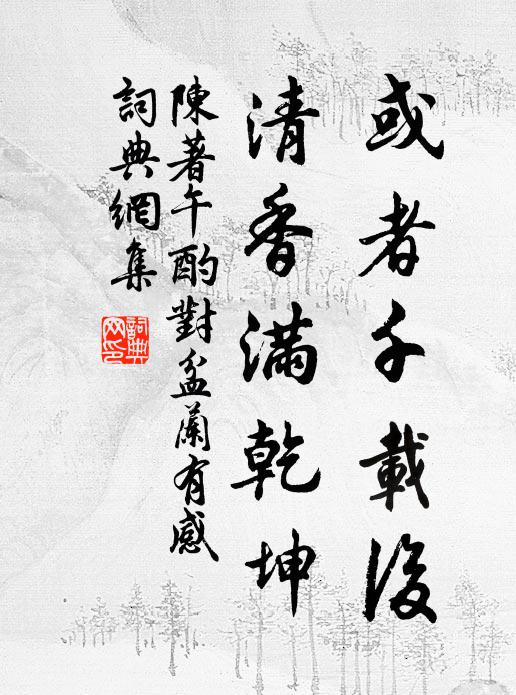 或者千載後
清香滿乾坤
陳著午酌對盆蘭有感
詞典網集
詞典网印